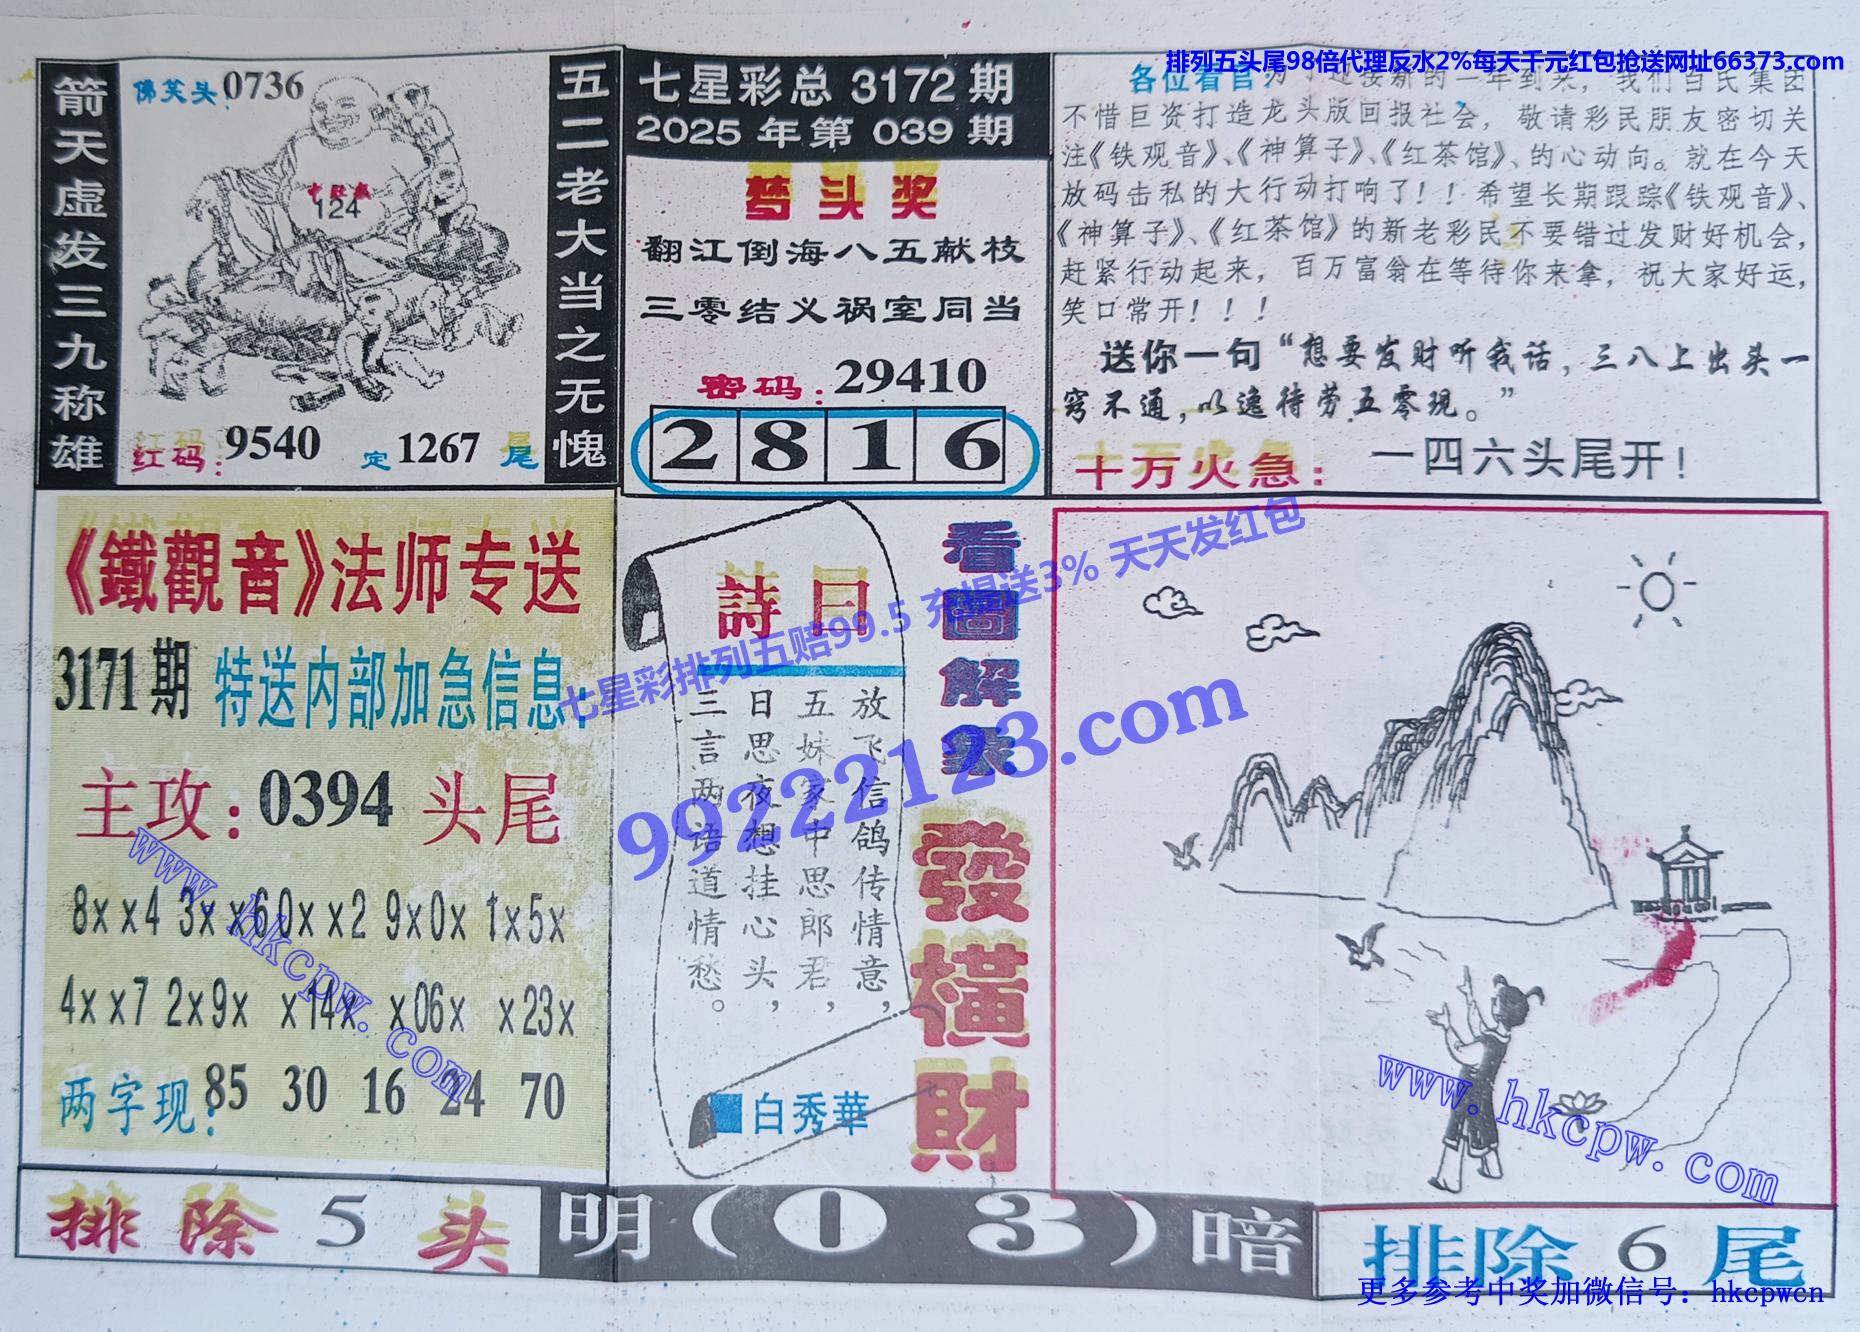 排列五头尾98倍代理反水2%每天千元红包抢送网址66373.com
箭天虚发三九称雄
佛笑头:0736
中肚藏
124
红码:9540 定1267尾
五二老大当之无愧
七星彩总3172期
2025年第039期
梦头奖
翻江倒海八五献枝
三零结义祸室同当
密码:29410
2 8 1 6
各位看官:为了迎接新的一年到来，我们百氏集团
不惜巨资打造龙头版回报社会，敬请彩民朋友密切关
注《铁观音》、《神算子》、《红茶馆》、的心动向。就在今天
放码击私的大行动打响了！！希望长期跟踪《铁观音》、
《神算子》、《红茶馆》的新老彩民不要错过发财好机会，
赶紧行动起来，百万富翁在等待你来拿，祝大家好运，
笑口常开！！！
送你一句“想要发财听我话，三八上出头一
窍不通，以逸待劳五零现。”
十万火急:一四六头尾开！
《鐵觀音》法师专送
3171期 特送内部加急信息:
主攻:0394头尾
8xx4 3xx6 0xx2 9x0x 1x5x
4xx7 2x9x x14x x06x x23x
两字现:85 30 16 24 70
詩曰
放飞信鸽传情意，
五妹家中思郎君，
日思夜想挂心头，
三言两语道情愁。
白秀華
看圖解象
發橫財
七星彩排列五赔99.5 充提送3% 天天发红包
99222123.com
www.hkcpw.com
www.hkcpw.com
排除5头
明(03)暗
排除6尾
更多参考中奖加微信号：hkcpwcn